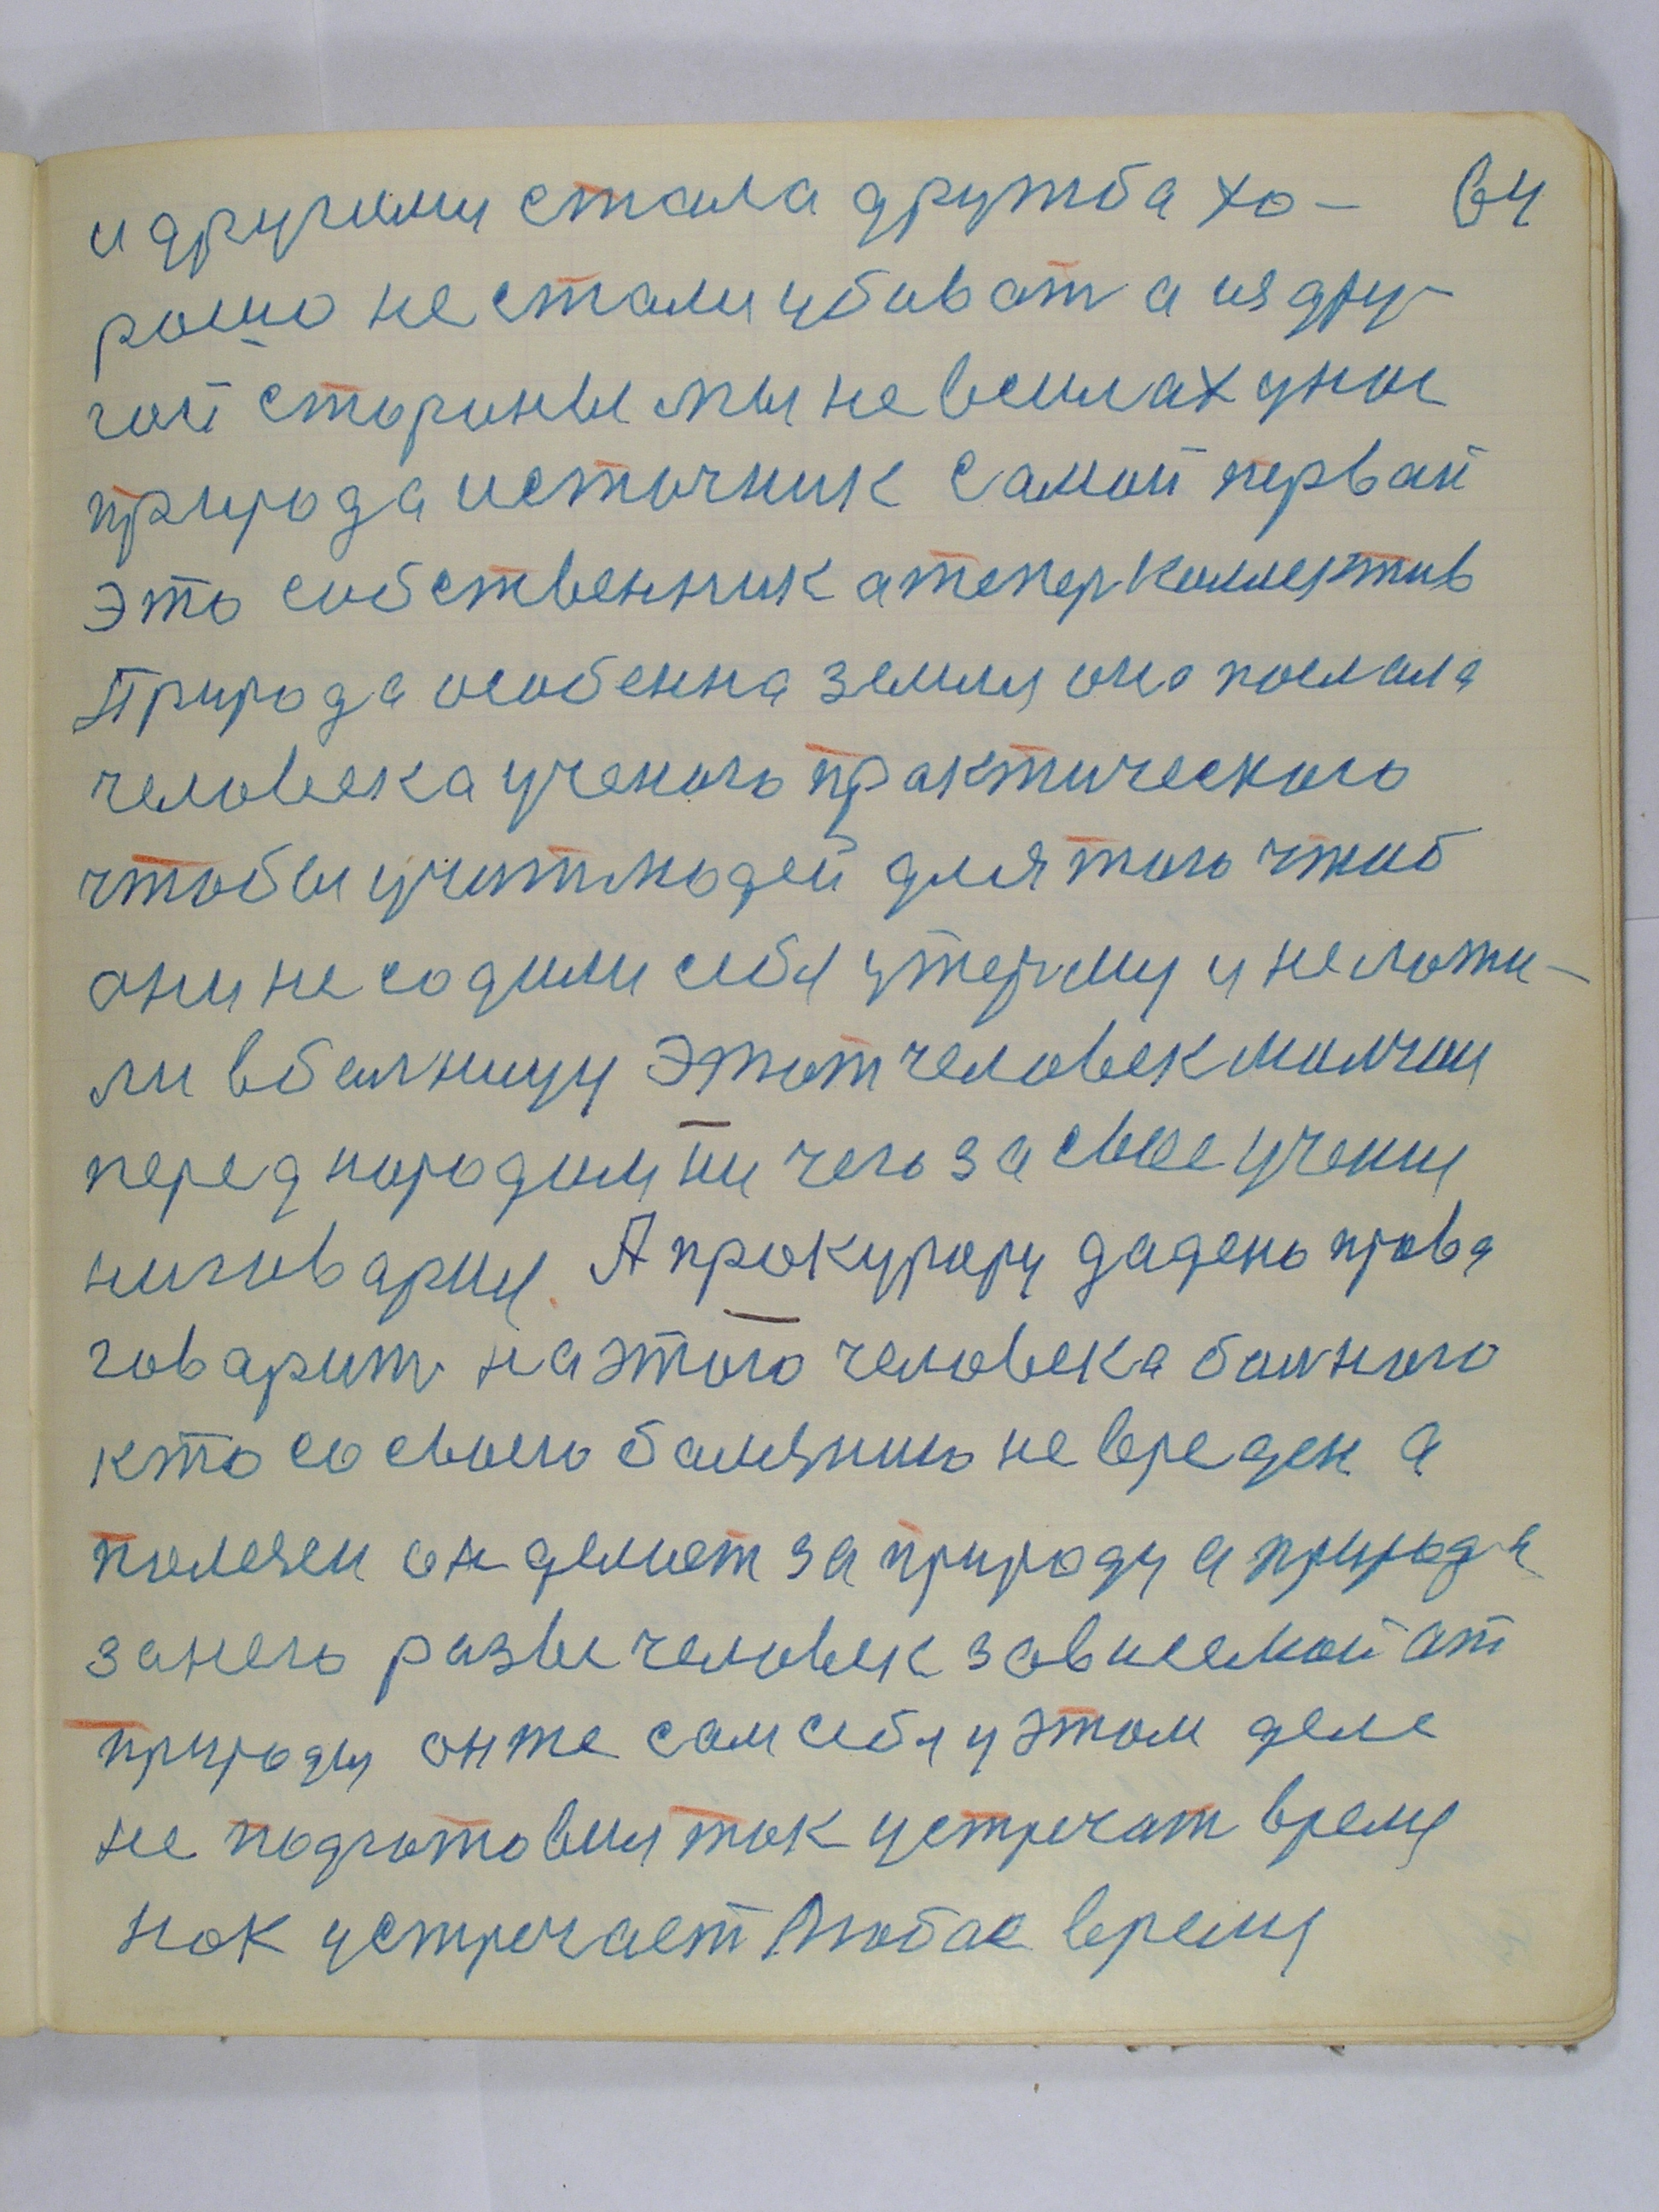 и другими стала дружба хо- 64
рошо не стали убиват а из дру-
гой стороны мы не всилах унас
природа источник самой первай
это собственник а тепер коллектив
Природа особенна земля она послала
человека ученого практического
чтобы учит людей для того чтоб
они не содили себя утюрму и не ложи-
ли в болницу Этот человек молчал
перед народом ни чего за свое учения
ниговарил. А прокурору дадено права
говарит на этого человека болного
кто со своего болезнию не вреден а
полезен он делает за природу а природа
занего разве человек зависемой от
природы он же сам себя у этом деле
не подготовил так устречат время
как устречает Любое время